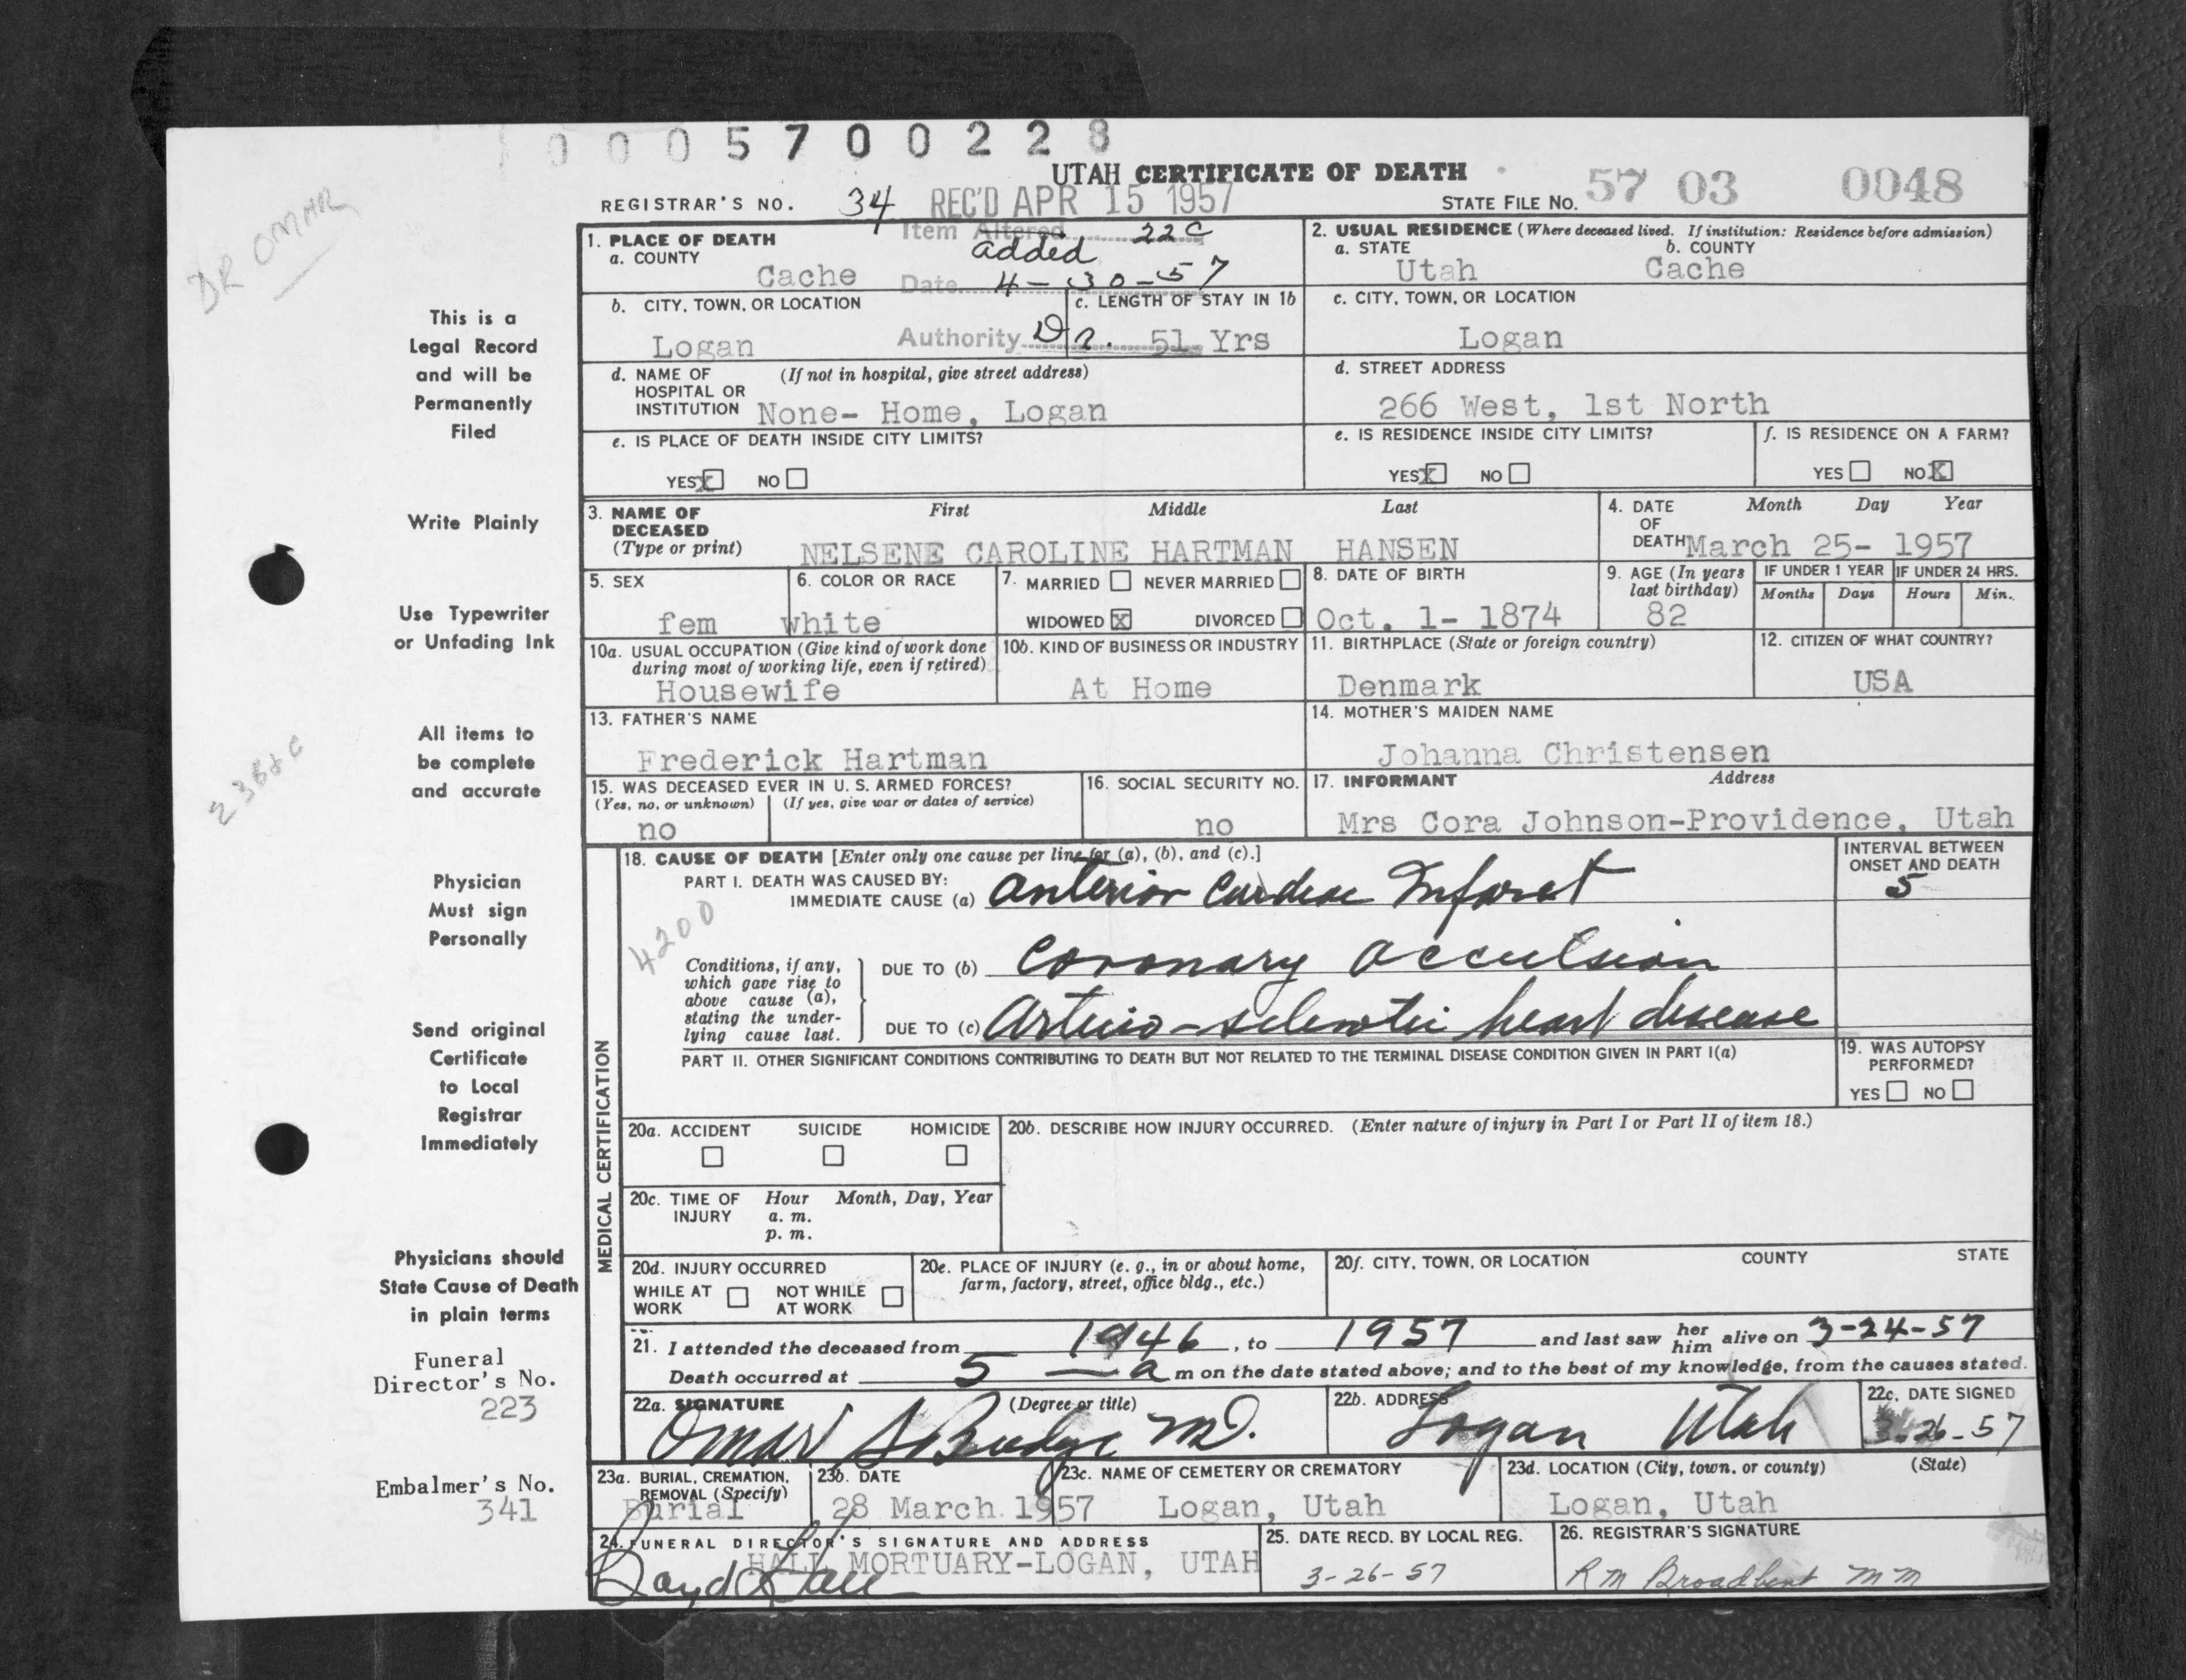 0005700228
UTAH CERTIFICATE OF DEATH
REGISTRAR'S NO. 34 REC'D APR 15 1957 STATE FILE NO. 57 03 0048
DR OMAR
Item Altered added 22c
Date 4-30-57
Authority Dr.
1. PLACE OF DEATH
a. COUNTY
Cache
2. USUAL RESIDENCE (Where deceased lived. If institution: Residence before admission)
a. STATE b. COUNTY
Utah Cache
b. CITY, TOWN, OR LOCATION
Logan
c. LENGTH OF STAY IN 1b
51 Yrs
c. CITY, TOWN, OR LOCATION
Logan
d. NAME OF HOSPITAL OR INSTITUTION (If not in hospital, give street address)
None- Home, Logan
d. STREET ADDRESS
266 West, 1st North
e. IS PLACE OF DEATH INSIDE CITY LIMITS?
YES X NO
e. IS RESIDENCE INSIDE CITY LIMITS?
YES X NO
f. IS RESIDENCE ON A FARM?
YES NO X
3. NAME OF DECEASED (Type or print) First Middle Last
NELSENE CAROLINE HARTMAN HANSEN
4. DATE OF DEATH Month Day Year
March 25- 1957
5. SEX
fem
6. COLOR OR RACE
white
7. MARRIED NEVER MARRIED
WIDOWED X DIVORCED
8. DATE OF BIRTH
Oct. 1- 1874
9. AGE (In years last birthday)
82
IF UNDER 1 YEAR IF UNDER 24 HRS.
Months Days Hours Min.
10a. USUAL OCCUPATION (Give kind of work done during most of working life, even if retired)
Housewife
10b. KIND OF BUSINESS OR INDUSTRY
At Home
11. BIRTHPLACE (State or foreign country)
Denmark
12. CITIZEN OF WHAT COUNTRY?
USA
13. FATHER'S NAME
Frederick Hartman
14. MOTHER'S MAIDEN NAME
Johanna Christensen
15. WAS DECEASED EVER IN U. S. ARMED FORCES?
(Yes, no, or unknown) (If yes, give war or dates of service)
no
16. SOCIAL SECURITY NO.
no
17. INFORMANT Address
Mrs Cora Johnson-Providence, Utah
MEDICAL CERTIFICATION
18. CAUSE OF DEATH [Enter only one cause per line for (a), (b), and (c).]
INTERVAL BETWEEN ONSET AND DEATH
PART I. DEATH WAS CAUSED BY:
IMMEDIATE CAUSE (a) Anterior Cardiac Infarct 5
4200
Conditions, if any, which gave rise to above cause (a), stating the underlying cause last.
DUE TO (b) Coronary occulsion
DUE TO (c) Arterio-sclerotic heart disease
PART II. OTHER SIGNIFICANT CONDITIONS CONTRIBUTING TO DEATH BUT NOT RELATED TO THE TERMINAL DISEASE CONDITION GIVEN IN PART I(a)
19. WAS AUTOPSY PERFORMED?
YES NO
20a. ACCIDENT SUICIDE HOMICIDE
20b. DESCRIBE HOW INJURY OCCURRED. (Enter nature of injury in Part I or Part II of item 18.)
20c. TIME OF INJURY Hour Month, Day, Year
a. m.
p. m.
20d. INJURY OCCURRED
WHILE AT WORK NOT WHILE AT WORK
20e. PLACE OF INJURY (e. g., in or about home, farm, factory, street, office bldg., etc.)
20f. CITY, TOWN, OR LOCATION COUNTY STATE
21. I attended the deceased from 1946, to 1957 and last saw her him alive on 3-24-57
Death occurred at 5 — a m on the date stated above; and to the best of my knowledge, from the causes stated.
22a. SIGNATURE (Degree or title)
Omar S Budge M.D.
22b. ADDRESS
Logan Utah
22c. DATE SIGNED
3-26-57
23a. BURIAL, CREMATION, REMOVAL (Specify)
Burial
23b. DATE
28 March 1957
23c. NAME OF CEMETERY OR CREMATORY
Logan, Utah
23d. LOCATION (City, town, or county) (State)
Logan, Utah
24. FUNERAL DIRECTOR'S SIGNATURE AND ADDRESS
HALL MORTUARY-LOGAN, UTAH
25. DATE RECD. BY LOCAL REG.
3-26-57
26. REGISTRAR'S SIGNATURE
RM Broadbent mm
This is a
Legal Record
and will be
Permanently
Filed
Write Plainly
Use Typewriter
or Unfading Ink
All items to
be complete
and accurate
Physician
Must sign
Personally
Send original
Certificate
to Local
Registrar
Immediately
Physicians should
State Cause of Death
in plain terms
Funeral
Director's No.
223
Embalmer's No.
341